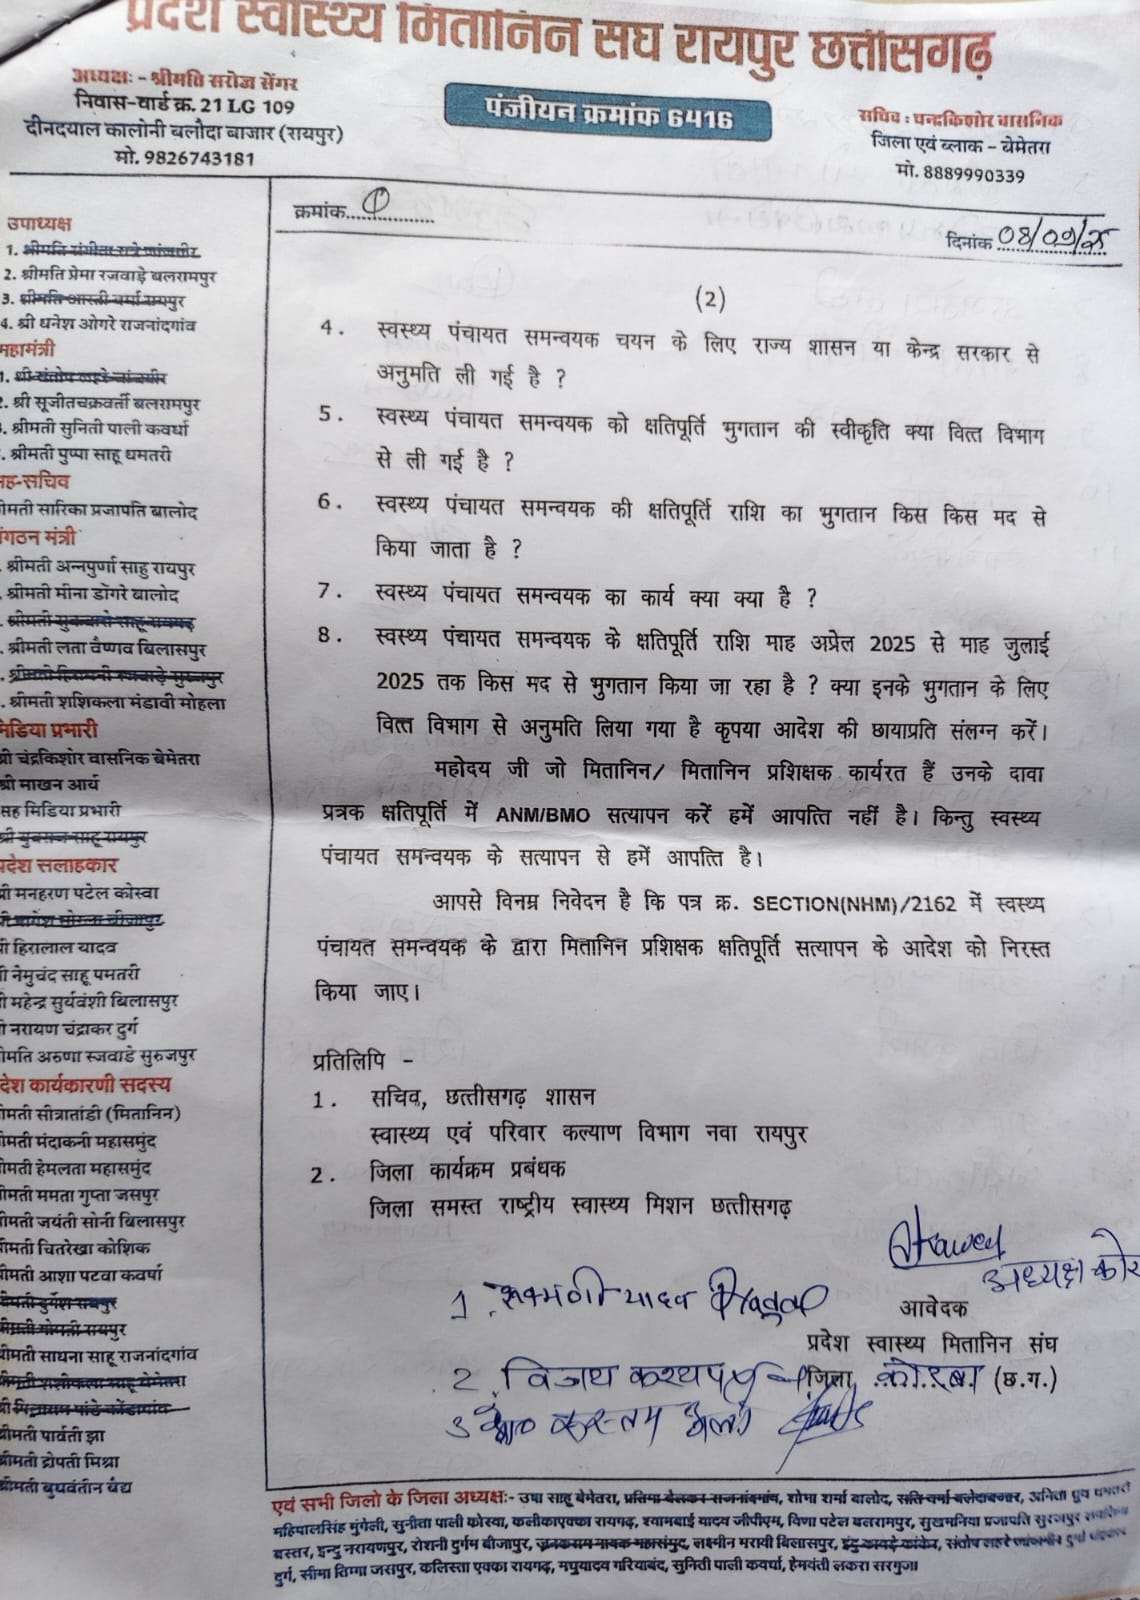 प्रदेश स्वास्थ्य मितानिन संघ रायपुर छत्तीसगढ़
अध्यक्षः - श्रीमति सरोज सेंगर
निवास-वार्ड क्र. 21 LG 109
दीनदयाल कालोनी बलौदा बाजार (रायपुर)
मो. 9826743181
पंजीयन क्रमांक 6416
सचिव : चन्द्रकिशोर वासनिक
जिला एवं ब्लाक - बेमेतरा
मो. 8889990339
क्रमांक
दिनांक
उपाध्यक्ष
2. श्रीमति प्रेमा रजवाड़े बलरामपुर
4. श्री धनेश ओगरे राजनांदगांव
महामंत्री
श्री सूजीतचक्रवर्ती बलरामपुर
श्रीमती सुनिती पाली कवर्धा
श्रीमती पुष्पा साहू धमतरी
सह-सचिव
श्रीमती सारिका प्रजापति बालोद
संगठन मंत्री
श्रीमती अन्नपुर्णा साहु रायपुर
श्रीमती मीना डोंगरे बालोद
श्रीमती लता वैष्णव बिलासपुर
श्रीमती शशिकला मंडावी मोहला
मिडिया प्रभारी
श्री चंद्रकिशोर वासनिक बेमेतरा
श्री माखन आर्य
सह मिडिया प्रभारी
प्रदेश सलाहकार
श्री मनहरण पटेल कोरवा
श्री हिरालाल यादव
श्री महेन्द्र सुर्यवंशी बिलासपुर
श्री नारायण चंद्राकर दुर्ग
प्रदेश कार्यकारणी सदस्य
श्रीमती मंदाकनी महासमुंद
श्रीमती हेमलता महासमुंद
श्रीमती ममता गुप्ता जसपुर
श्रीमती जयंती सोनी बिलासपुर
श्रीमती चितरेखा कोशिक
श्रीमती आशा पटवा कवर्धा
श्रीमती साधना साहू राजनांदगांव
श्रीमती पार्वती झा
श्रीमती द्रोपती मिश्रा
(2)
4. स्वस्थ्य पंचायत समन्वयक चयन के लिए राज्य शासन या केन्द्र सरकार से
अनुमति ली गई है ?
5. स्वस्थ्य पंचायत समन्वयक को क्षतिपूर्ति भुगतान की स्वीकृति क्या वित्त विभाग
से ली गई है ?
6. स्वस्थ्य पंचायत समन्वयक की क्षतिपूर्ति राशि का भुगतान किस किस मद से
किया जाता है ?
7. स्वस्थ्य पंचायत समन्वयक का कार्य क्या क्या है ?
8. स्वस्थ्य पंचायत समन्वयक के क्षतिपूर्ति राशि माह अप्रेल 2025 से माह जुलाई
2025 तक किस मद से भुगतान किया जा रहा है ? क्या इनके भुगतान के लिए
वित्त विभाग से अनुमति लिया गया है कृपया आदेश की छायाप्रति संलग्न करें।
महोदय जी जो मितानिन/ मितानिन प्रशिक्षक कार्यरत हैं उनके दावा
प्रत्रक क्षतिपूर्ति में ANM/BMO सत्यापन करें हमें आपत्ति नहीं है। किन्तु स्वस्थ्य
पंचायत समन्वयक के सत्यापन से हमें आपत्ति है।
आपसे विनम्र निवेदन है कि पत्र क्र. SECTION(NHM)/2162 में स्वस्थ्य
पंचायत समन्वयक के द्वारा मितानिन प्रशिक्षक क्षतिपूर्ति सत्यापन के आदेश को निरस्त
किया जाए।
प्रतिलिपि -
1. सचिव, छत्तीसगढ़ शासन
स्वास्थ्य एवं परिवार कल्याण विभाग नवा रायपुर
2. जिला कार्यक्रम प्रबंधक
जिला समस्त राष्ट्रीय स्वास्थ्य मिशन छत्तीसगढ़
अध्यक्ष
1. रूकमणी यादव
आवेदक
प्रदेश स्वास्थ्य मितानिन संघ
2. विजय कश्यप
जिला कोरबा (छ.ग.)
एवं सभी जिलो के जिला अध्यक्षः- उषा साहू बेमेतरा, शोभा शर्मा बालोद, अनिता ध्रुव धमतरी
महिपालसिंह मुंगेली, सुनीता पाली कोरवा, कलीकाएक्का रायगढ़, श्यामबाई यादव जीपीएम, विणा पटेल बलरामपुर, सुखमनिया प्रजापति सुरजपुर
बस्तर, इन्दु नरायणपुर, रोशनी दुर्गम बीजापुर, लक्ष्मीन मरावी बिलासपुर,
दुर्ग, सीमा तिग्गा जसपुर, कलिस्ता एक्का रायगढ़, मपुयादव गरियाबंद, सुनिती पाली कवर्धा, हेमवंती लकरा सरगुजा